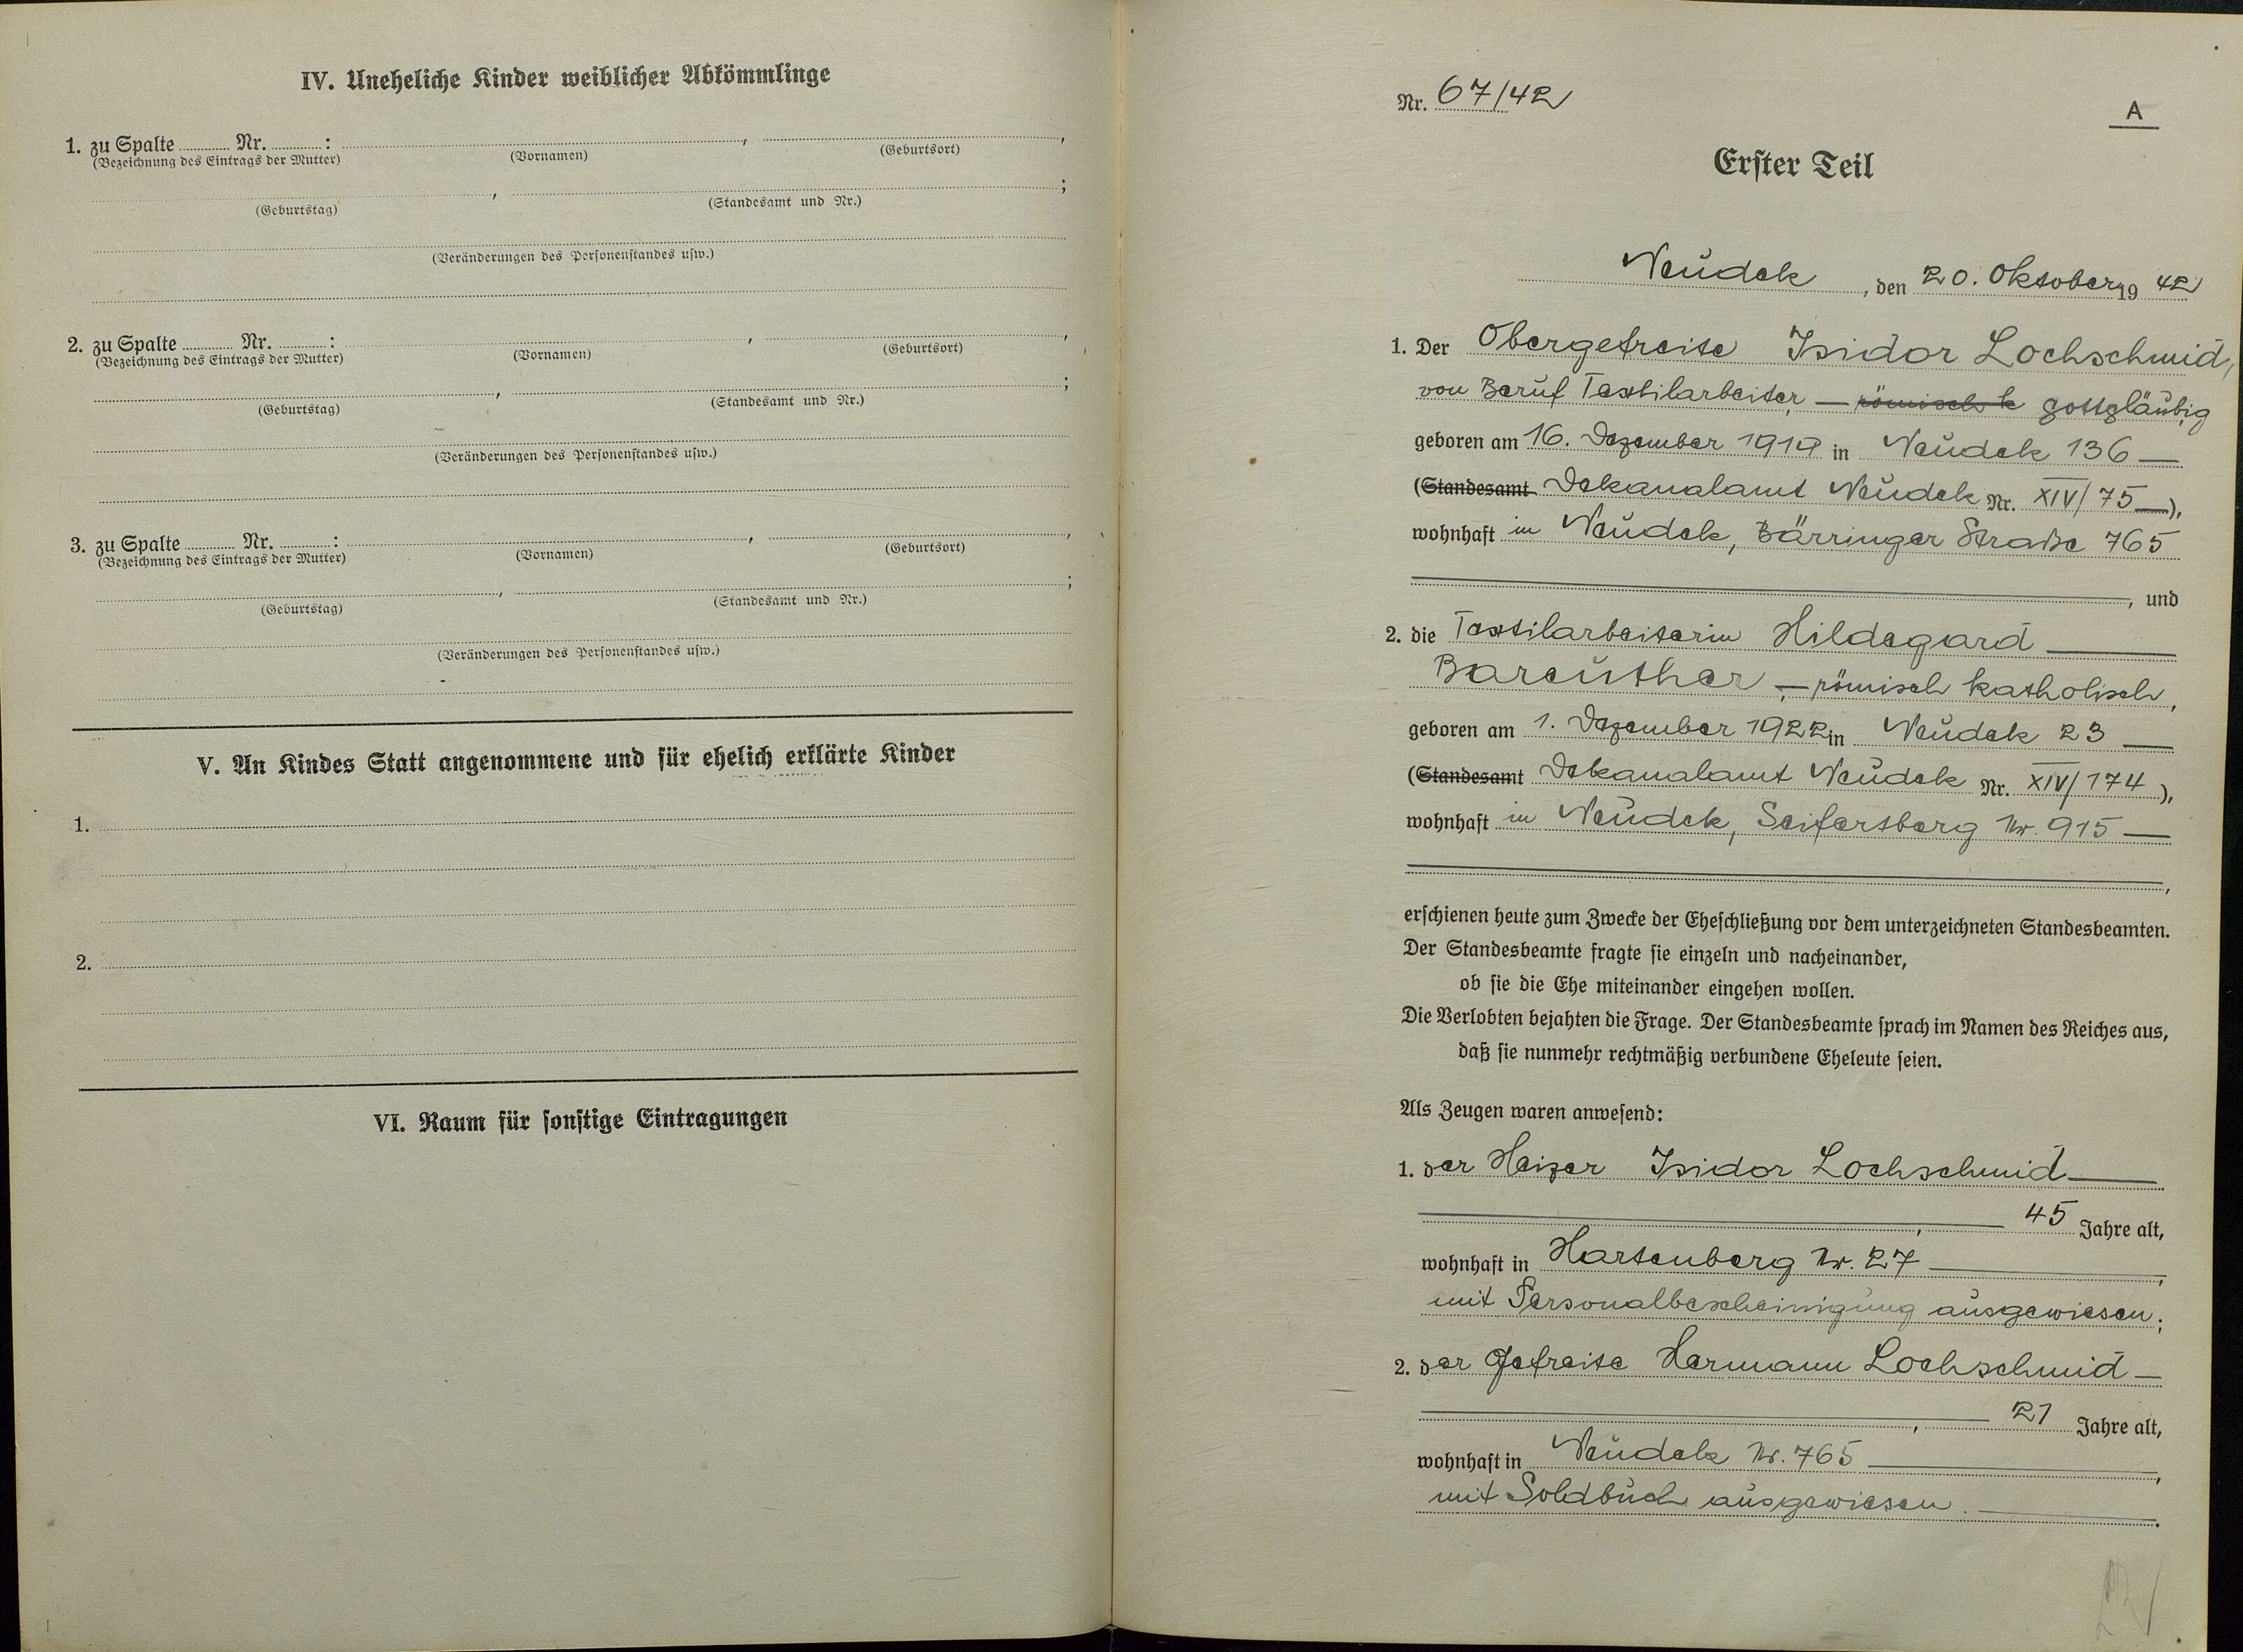 IV. Uneheliche Kinder weiblicher Abkömmlinge
1. zu Spalte ........ Nr. ........ : ........, ........,
(Bezeichnung des Eintrags der Mutter) (Vornamen) (Geburtsort)
........, ........;
(Geburtstag) (Standesamt und Nr.)
(Veränderungen des Personenstandes usw.)
2. zu Spalte ........ Nr. ........ : ........, ........,
(Bezeichnung des Eintrags der Mutter) (Vornamen) (Geburtsort)
........, ........;
(Geburtstag) (Standesamt und Nr.)
(Veränderungen des Personenstandes usw.)
3. zu Spalte ........ Nr. ........ : ........, ........,
(Bezeichnung des Eintrags der Mutter) (Vornamen) (Geburtsort)
........, ........;
(Geburtstag) (Standesamt und Nr.)
(Veränderungen des Personenstandes usw.)
V. An Kindes Statt angenommene und für ehelich erklärte Kinder
1.
2.
VI. Raum für sonstige Eintragungen
Nr. 67/42
A
Erster Teil
Neudek, den 20. Oktober 19 42
1. Der Obergefreite Isidor Lochschmid,
von Beruf Textilarbeiter, — römisch k gottgläubig,
geboren am 16. Dezember 1919 in Neudek 136 —
(Standesamt Dekanalamt Neudek Nr. XIV/75 —),
wohnhaft in Neudek, Bärringer Straße 765
, und
2. die Textilarbeiterin Hildegard —
Bareuther, — römisch katholisch,
geboren am 1. Dezember 1922 in Neudek 23 —
(Standesamt Dekanalamt Neudek Nr. XIV/174),
wohnhaft in Neudek, Seifertsberg Nr. 915 —
,
erschienen heute zum Zwecke der Eheschließung vor dem unterzeichneten Standesbeamten.
Der Standesbeamte fragte sie einzeln und nacheinander,
ob sie die Ehe miteinander eingehen wollen.
Die Verlobten bejahten die Frage. Der Standesbeamte sprach im Namen des Reiches aus,
daß sie nunmehr rechtmäßig verbundene Eheleute seien.
Als Zeugen waren anwesend:
1. der Heizer Isidor Lochschmid —
, — 45 Jahre alt,
wohnhaft in Hartenberg Nr. 27 —,
mit Personalbescheinigung ausgewiesen;
2. der Gefreite Hermann Lochschmid —
, — 21 Jahre alt,
wohnhaft in Neudek Nr. 765 —,
mit Soldbuch ausgewiesen. —.